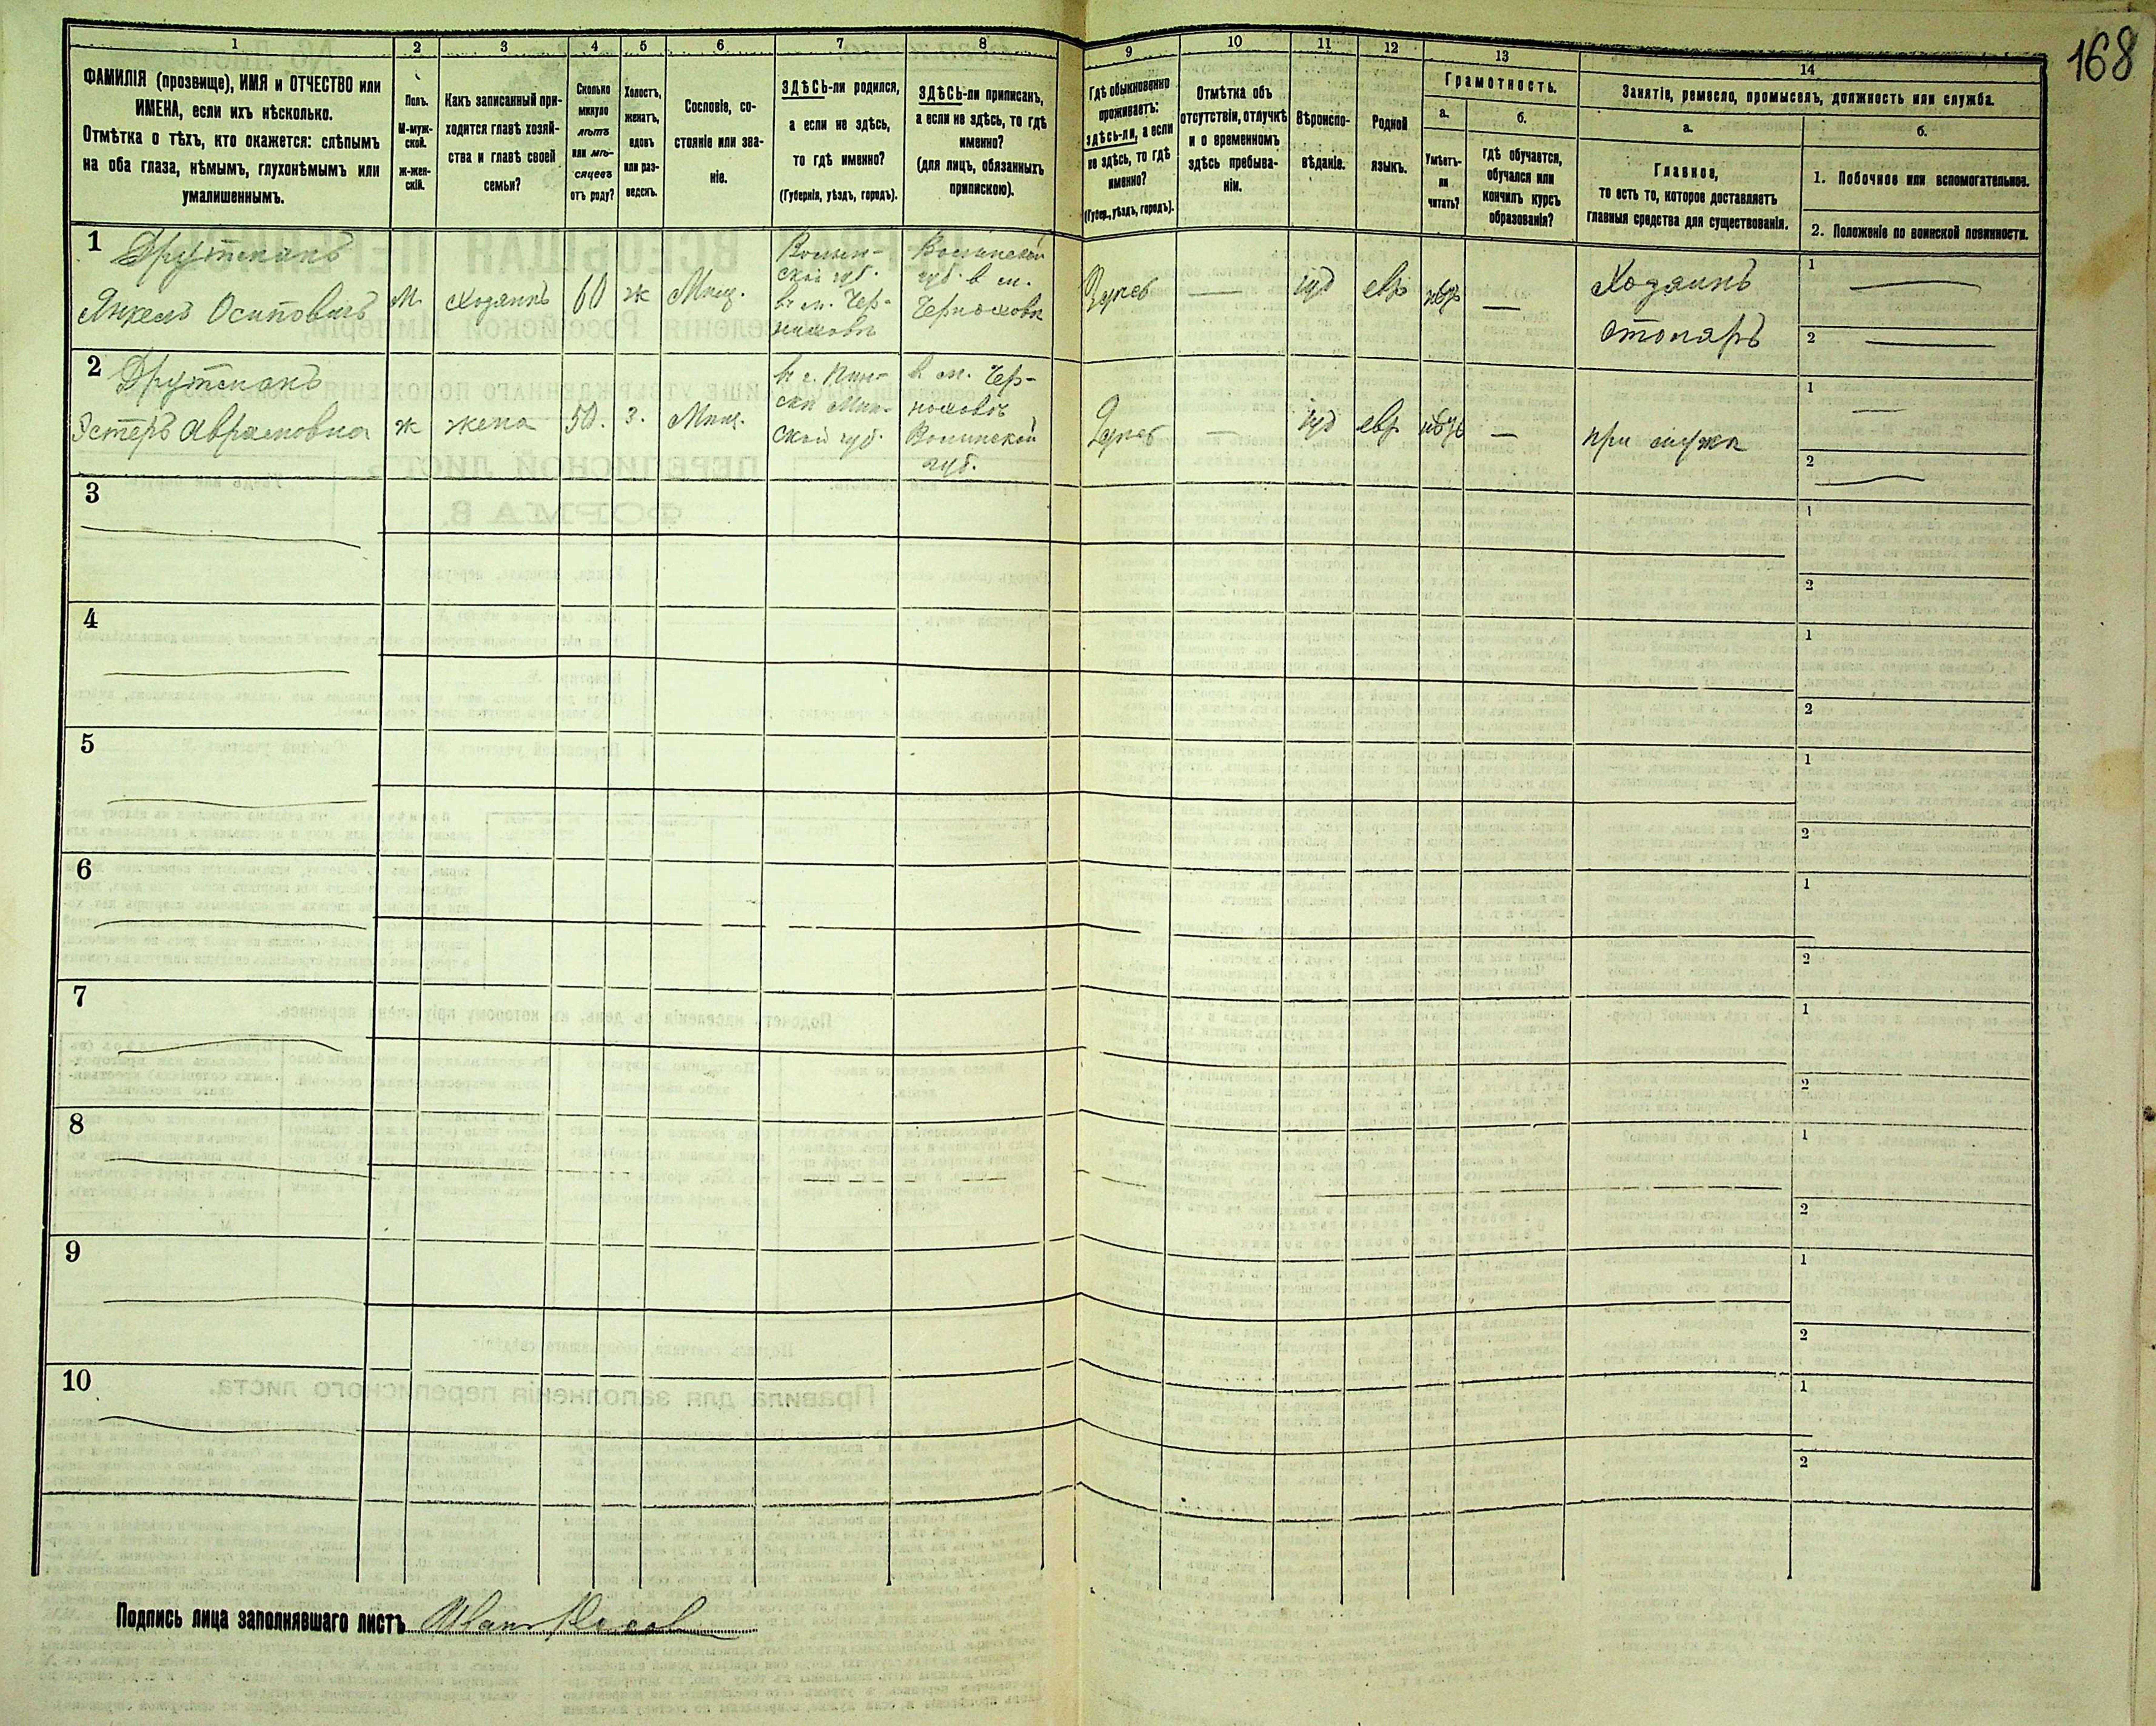 168
1
2
3
4
5
6
7
8
9
10
11
12
13
14
ФАМИЛІЯ (прозвище), ИМЯ и ОТЧЕСТВО или
ИМЕНА, если ихъ нѣсколько.
Отмѣтка о тѣхъ, кто окажется: слѣпымъ
на оба глаза, нѣмымъ, глухонѣмымъ или
умалишеннымъ.
Полъ.
М-муж-
ской.
ж-жен-
скій.
Какъ записанный при-
ходится главѣ хозяй-
ства и главѣ своей
семьи?
Сколько
минуло
лѣтъ
или мѣ-
сяцевъ
отъ роду?
Холостъ,
женатъ,
вдовъ
или раз-
веденъ.
Сословіе, со-
стояніе или зва-
ніе.
ЗДѢСЬ-ли родился,
а если не здѣсь,
то гдѣ именно?
(Губернія, уѣздъ, городъ).
ЗДѢСЬ-ли приписанъ,
а если не здѣсь, то гдѣ
именно?
(для лицъ, обязанныхъ
припискою).
Гдѣ обыкновенно
проживаетъ:
здѣсь-ли, а если
не здѣсь, то гдѣ
именно?
(Губер., уѣздъ, городъ).
Отмѣтка объ
отсутствіи, отлучкѣ
и о временномъ
здѣсь пребыва-
ніи.
Вѣроиспо-
вѣданіе.
Родной
языкъ.
Грамотность.
а.
Умѣетъ-
ли
читать?
б.
гдѣ обучается,
обучался или
кончилъ курсъ
образованія?
Занятіе, ремесло, промыселъ, должность или служба.
а.
Главное,
то есть то, которое доставляетъ
главныя средства для существованія.
б.
1. Побочное или вспомогательное.
2. Положеніе по воинской повинности.
1
Друтманъ
Янкель Осиповичъ
М.
Хозяинъ
60
ж
Мещ.
Волын-
ской губ.
въ м. Чер-
няховѣ
Волынской
губ. в м.
Черняховѣ
Здѣсь
іуд
евр
Хозяинъ
столяръ
1
2
2
Друтманъ
Эстеръ Аврамовна
ж
жена
50.
з.
Мещ.
въ г. Пин-
скѣ Мин-
ской губ.
в м. Чер-
няховѣ
Волынской
губ.
Здѣсь
іуд
евр
при мужѣ
1
2
3
1
2
4
1
2
5
1
2
6
1
2
7
1
2
8
1
2
9
1
2
10
1
2
Подпись лица заполнявшаго листъ